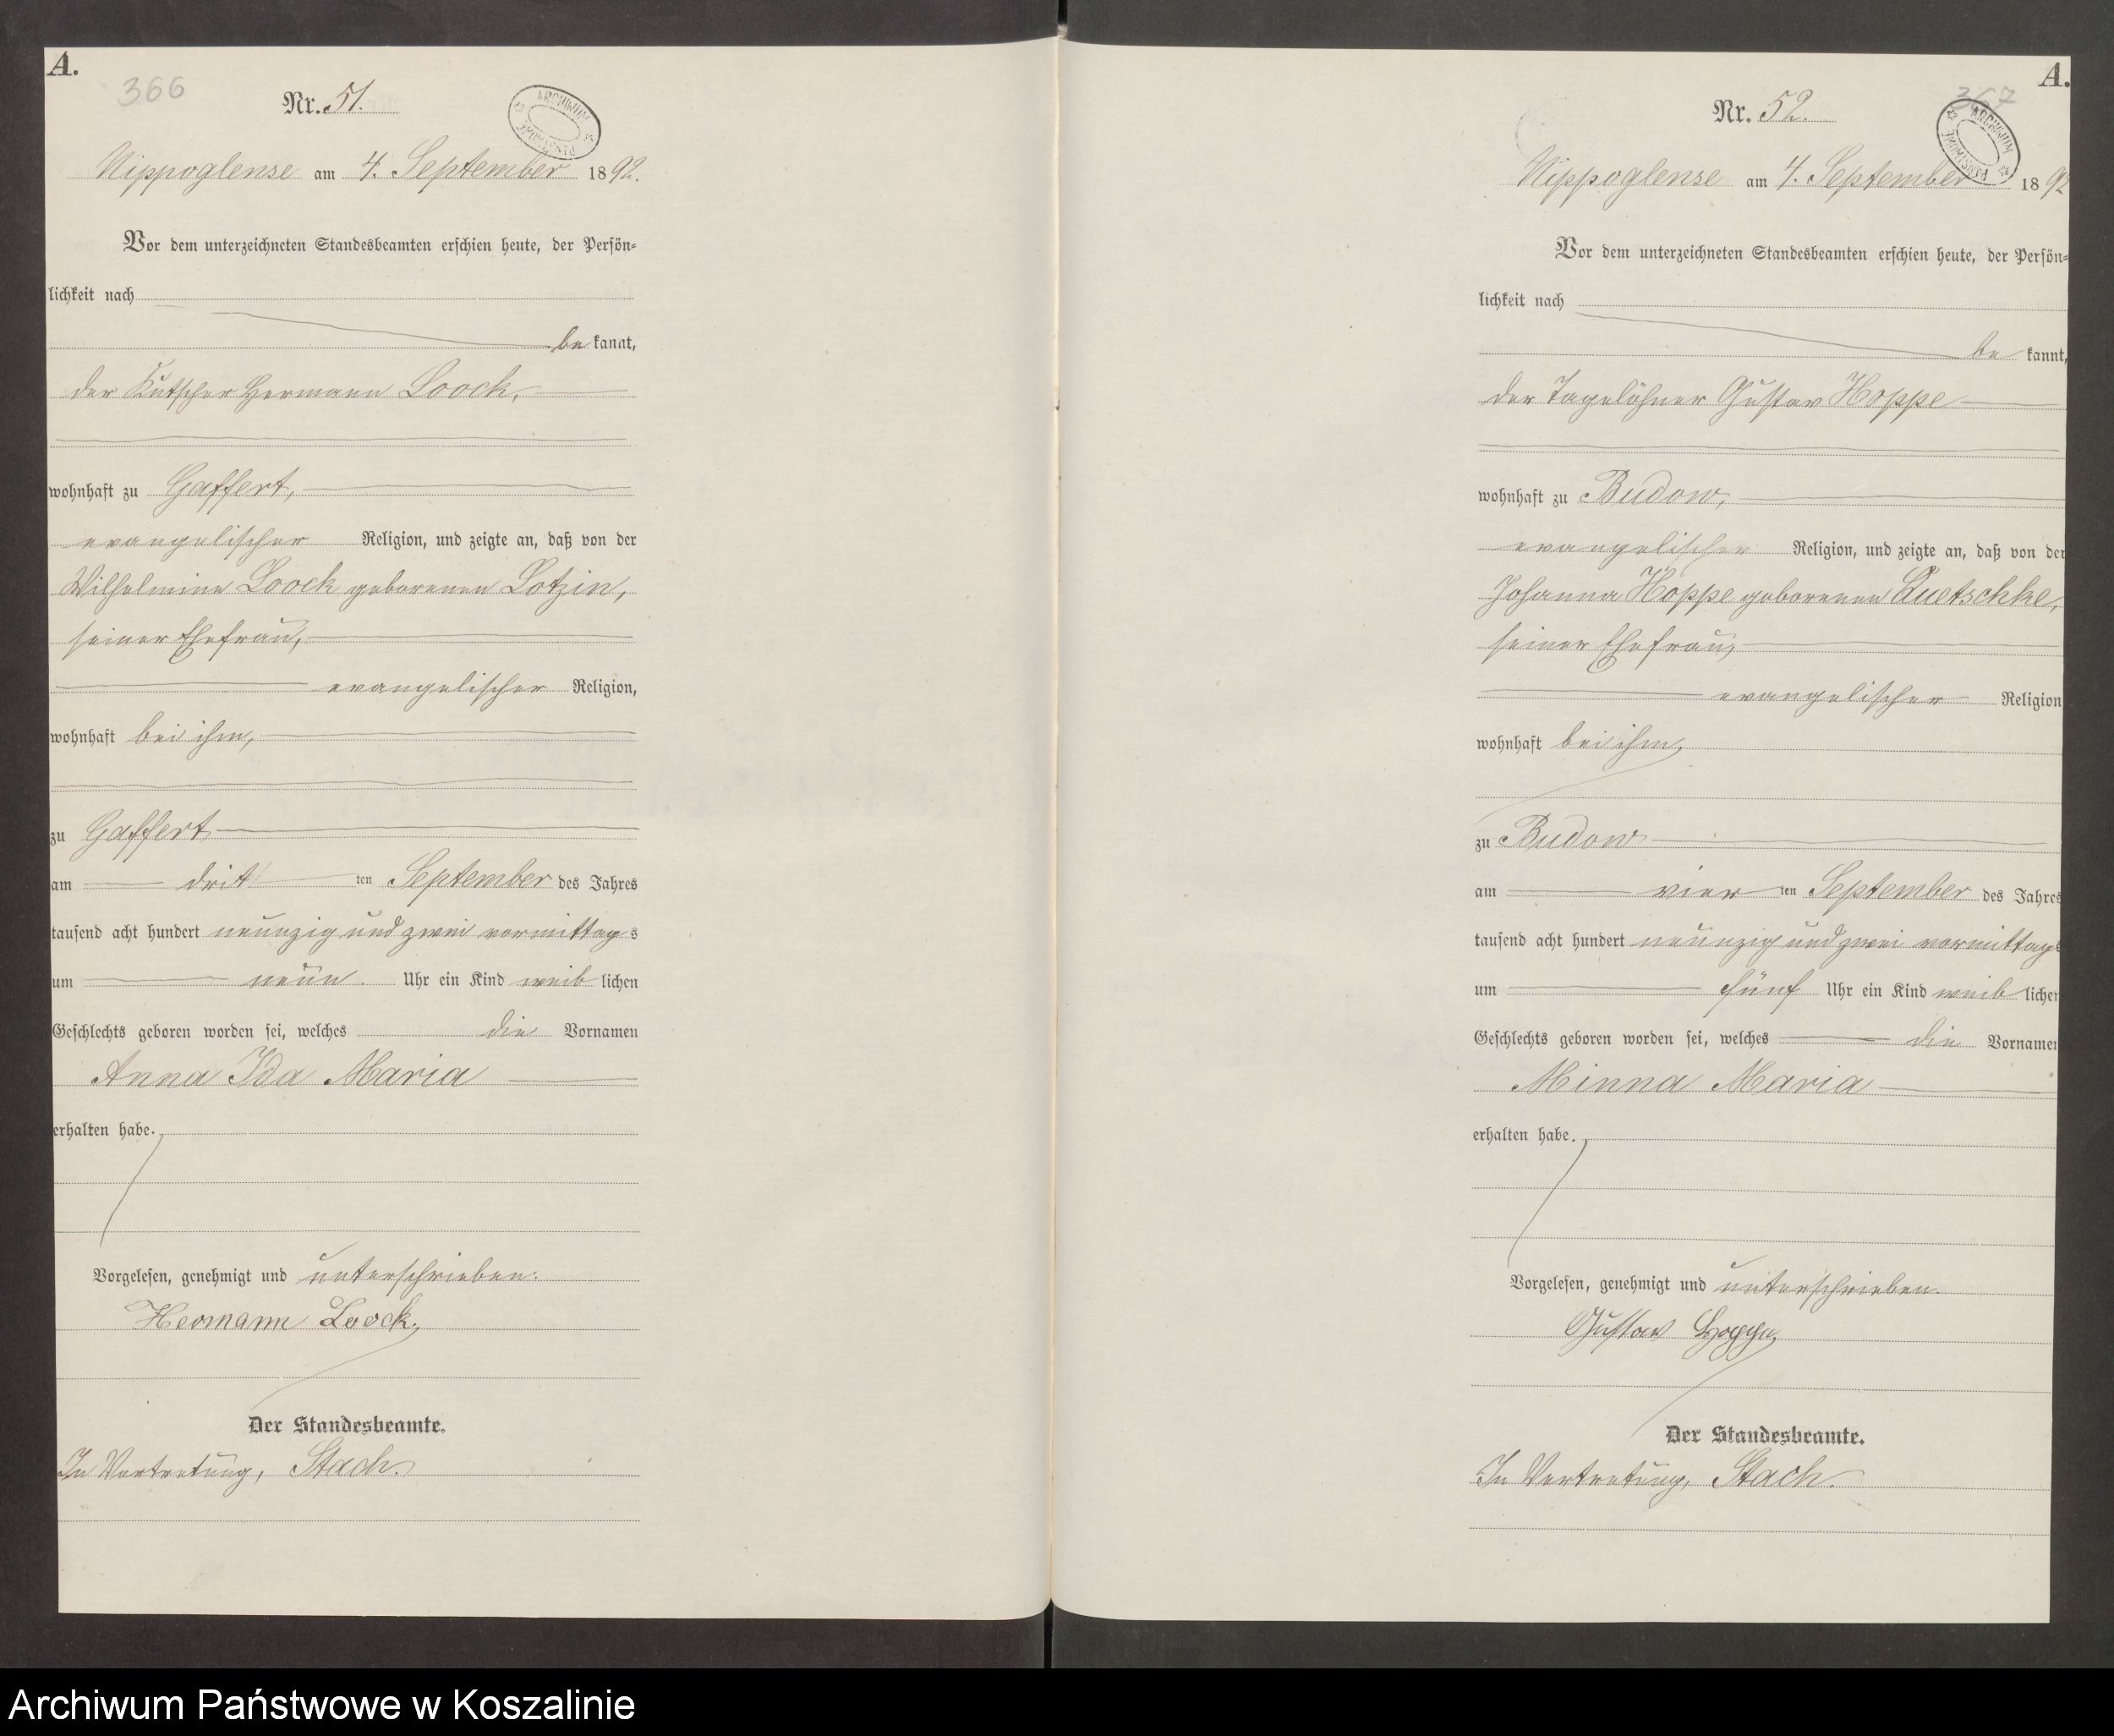 A.
366
Nr. 51.
ARCHIWUM PAŃSTWOWE
Nippoglense am 4. September 1892.
Vor dem unterzeichneten Standesbeamten erschien heute, der Persön-
lichkeit nach
be kannt,
der Kutscher Hermann Loock,
wohnhaft zu Gaffert,
evangelischer Religion, und zeigte an, daß von der
Wilhelmine Loock geborenen Lotzin,
seiner Ehefrau,
evangelischer Religion,
wohnhaft bei ihm,
zu Gaffert
am dritten September des Jahres
tausend acht hundert neunzig und zwei vormittags
um neun Uhr ein Kind weiblichen
Geschlechts geboren worden sei, welches die Vornamen
Anna Ida Maria
erhalten habe.
Vorgelesen, genehmigt und unterschrieben.
Hermann Loock.
Der Standesbeamte.
In Vertretung, Stach.
A.
367
Nr. 52.
ARCHIWUM PAŃSTWOWE
Nippoglense am 4. September 1892
Vor dem unterzeichneten Standesbeamten erschien heute, der Persön-
lichkeit nach
be kannt,
der Tagelöhner Gustav Hoppe
wohnhaft zu Budow,
evangelischer Religion, und zeigte an, daß von der
Johanna Hoppe geborenen Quetschke,
seiner Ehefrau,
evangelischer Religion
wohnhaft bei ihm,
zu Budow
am vierten September des Jahres
tausend acht hundert neunzig und zwei vormittags
um fünf Uhr ein Kind weiblichen
Geschlechts geboren worden sei, welches die Vornamen
Minna Maria
erhalten habe.
Vorgelesen, genehmigt und unterschrieben.
Gustav Hoppe,
Der Standesbeamte.
In Vertretung, Stach.
Archiwum Państwowe w Koszalinie